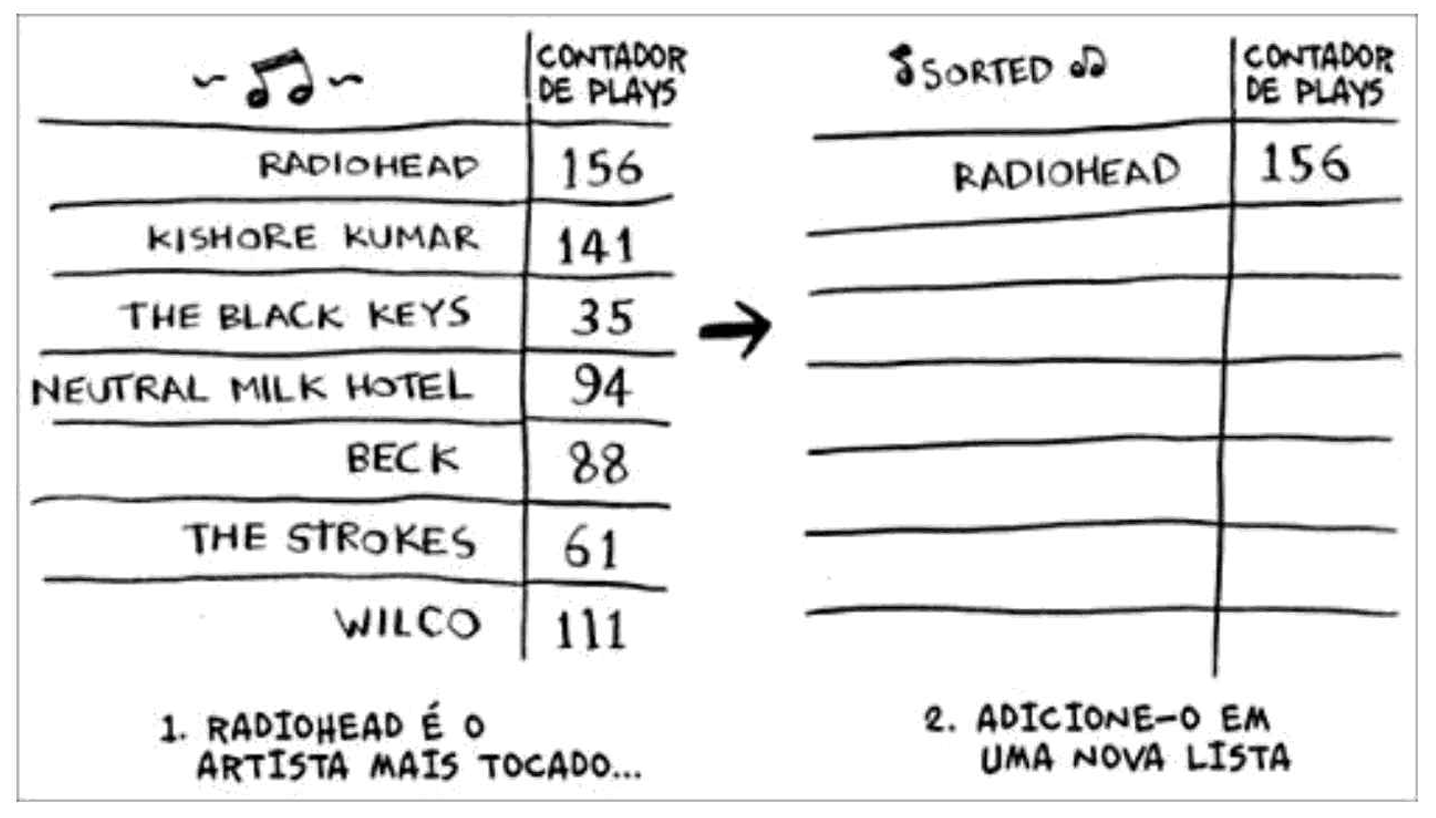 CONTADOR
DE PLAYS
RADIOHEAD 156
KISHORE KUMAR 141
THE BLACK KEYS 35
NEUTRAL MILK HOTEL 94
BECK 88
THE STROKES 61
WILCO 111
1. RADIOHEAD É O
ARTISTA MAIS TOCADO...
SORTED
CONTADOR
DE PLAYS
RADIOHEAD 156
2. ADICIONE-O EM
UMA NOVA LISTA